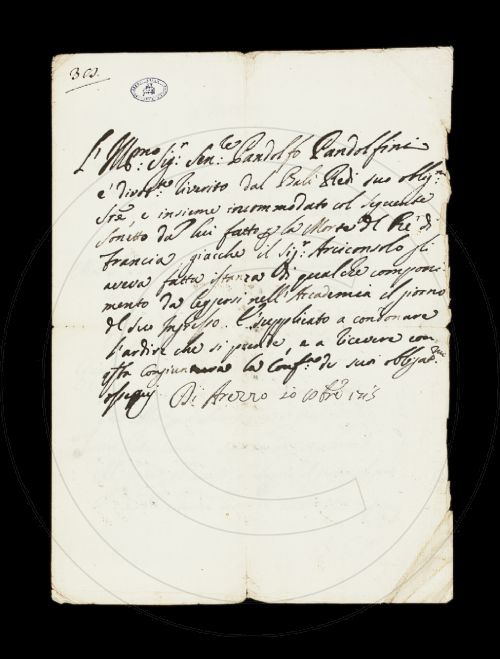 303.
L'Ill.mo Sig.r Sen.re Pandolfo Pandolfini
è divot.te riverito dal Balì Redi suo oblig.mo
Sre, e insieme incommodato col seguente
Sonetto da lui fatto p la Morte del Re di
Francia, giacchè il Sig.r Arciconsolo gli
aveva fatta istanza di qualche componi
mento da leggersi nell'Accademia il giorno
del suo Ingresso. È supplicato a condonare
l'ardire che si prende e a ricevere con
q.sta congiuntura la de suoi
ossequij Di Arezzo 20 8bre 1715